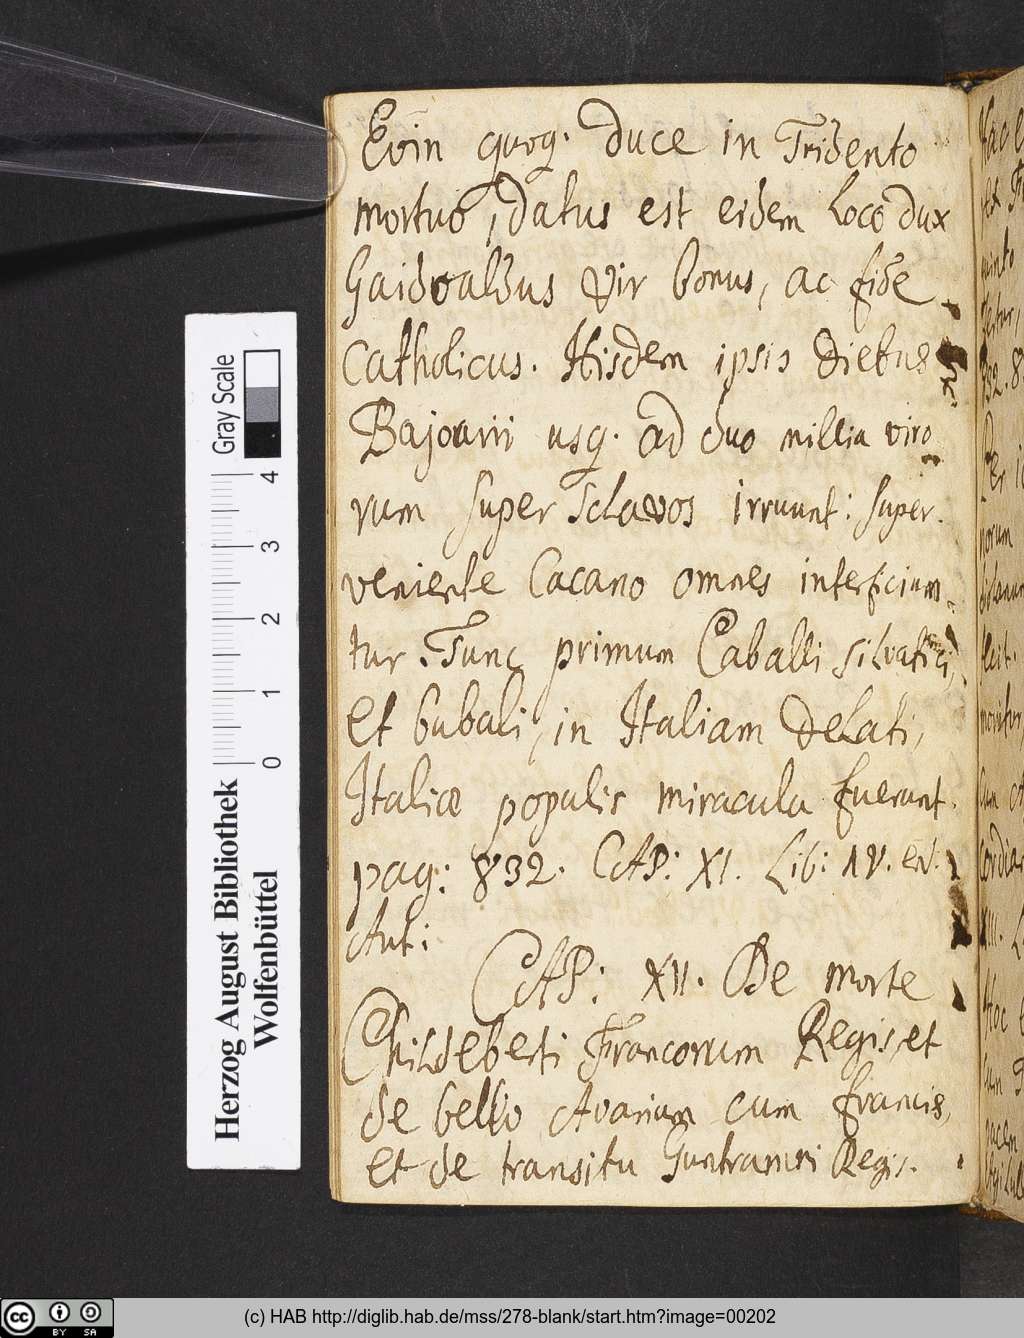 Evin quoq. duce in Tridento
mortuo, datus est eidem Loco dux
Gaidoaldus vir bonus, ac fide
Catholicus. Hisdem ipsis diebus
Bajoarii usq. ad duo millia viro
rum super Sclavos irruunt: super
veniente Cacano omnes interficiun
tur. Tunc primum Caballi silvatici,
Et bubali, in Italiam delati,
Italiæ populis miracula fuerunt.
pag: 832. CAP: XI. Lib: IV. ed.
Aut:
CAP: XII. De morte
Childeberti Francorum Regis, et
de bello Avarium cum francis,
et de transitu Guntramni Regis.
Gray Scale
0 1 2 3 4
Herzog August Bibliothek
Wolfenbüttel
cc BY SA
(c) HAB http://diglib.hab.de/mss/278-blank/start.htm?image=00202